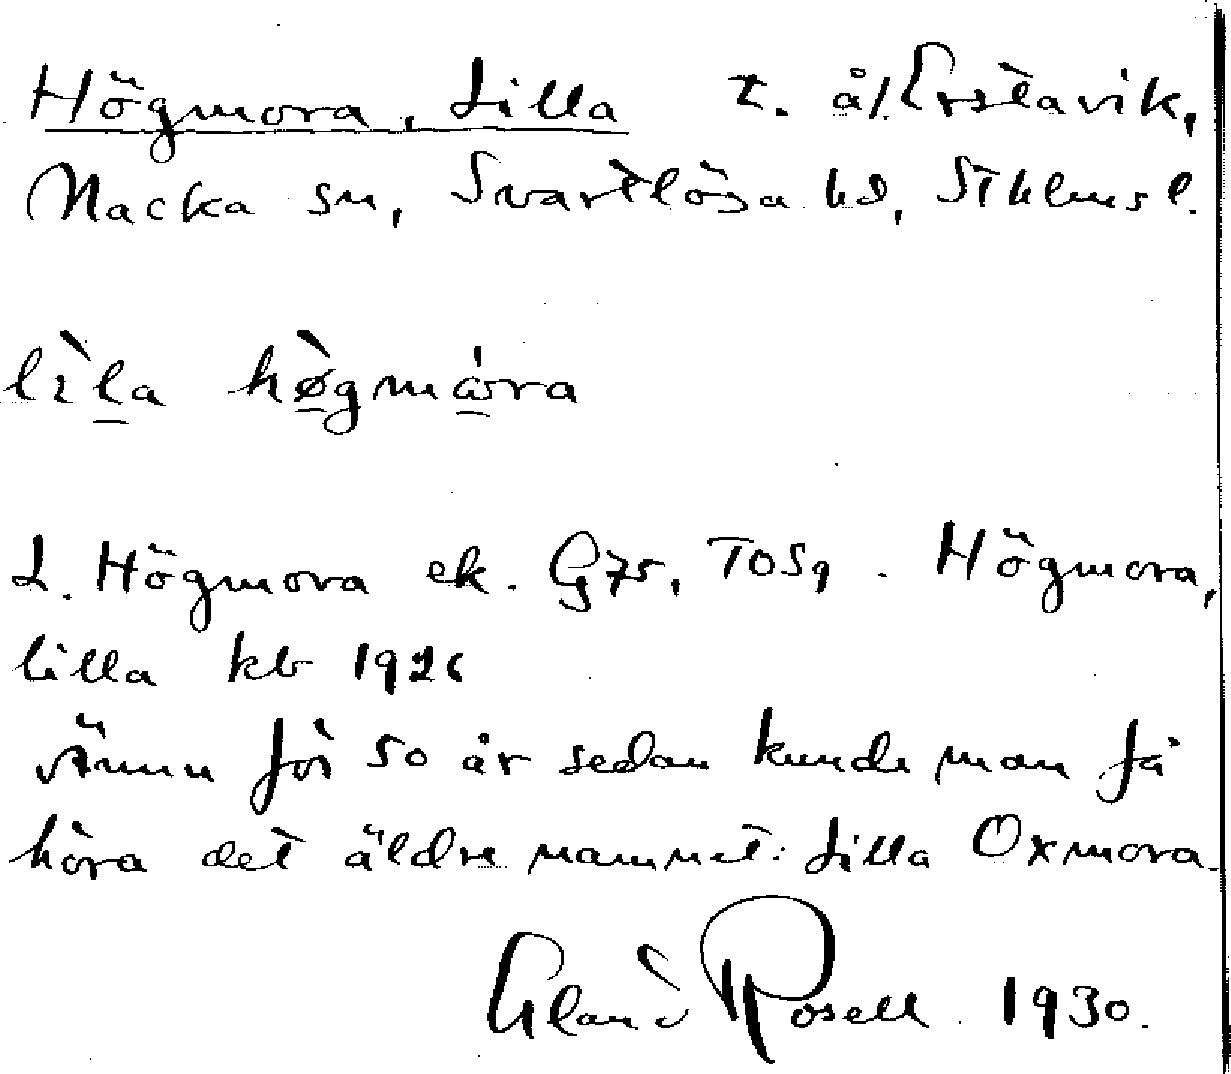 Högmora, Lilla t. å/Erstavik,
Nacka sn, Svartlösa hd, Sthlms l.
lìla hø̀gmɷ́ra
L. Högmora ek. G75, TOS9. Högmora,
lilla kb 1926
Ännu för 50 år sedan kunde man få
höra det äldre namnet: Lilla Oxmora.
Rosell 1930.